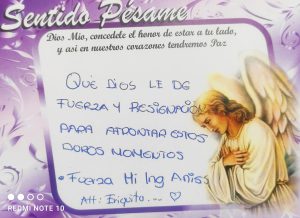 Sentido Pésame
Dios Mío, concedele el honor de estar a tu lado,
y así en nuestros corazones tendremos Paz
QUE DIOS LE DE
FUERZA Y RESIGNACIÓN
PARA AFRONTAR ESTOS
DUROS MOMENTOS
* Fuerza Mi Ing
Att: Eriquito.... ♡
REDMI NOTE 10